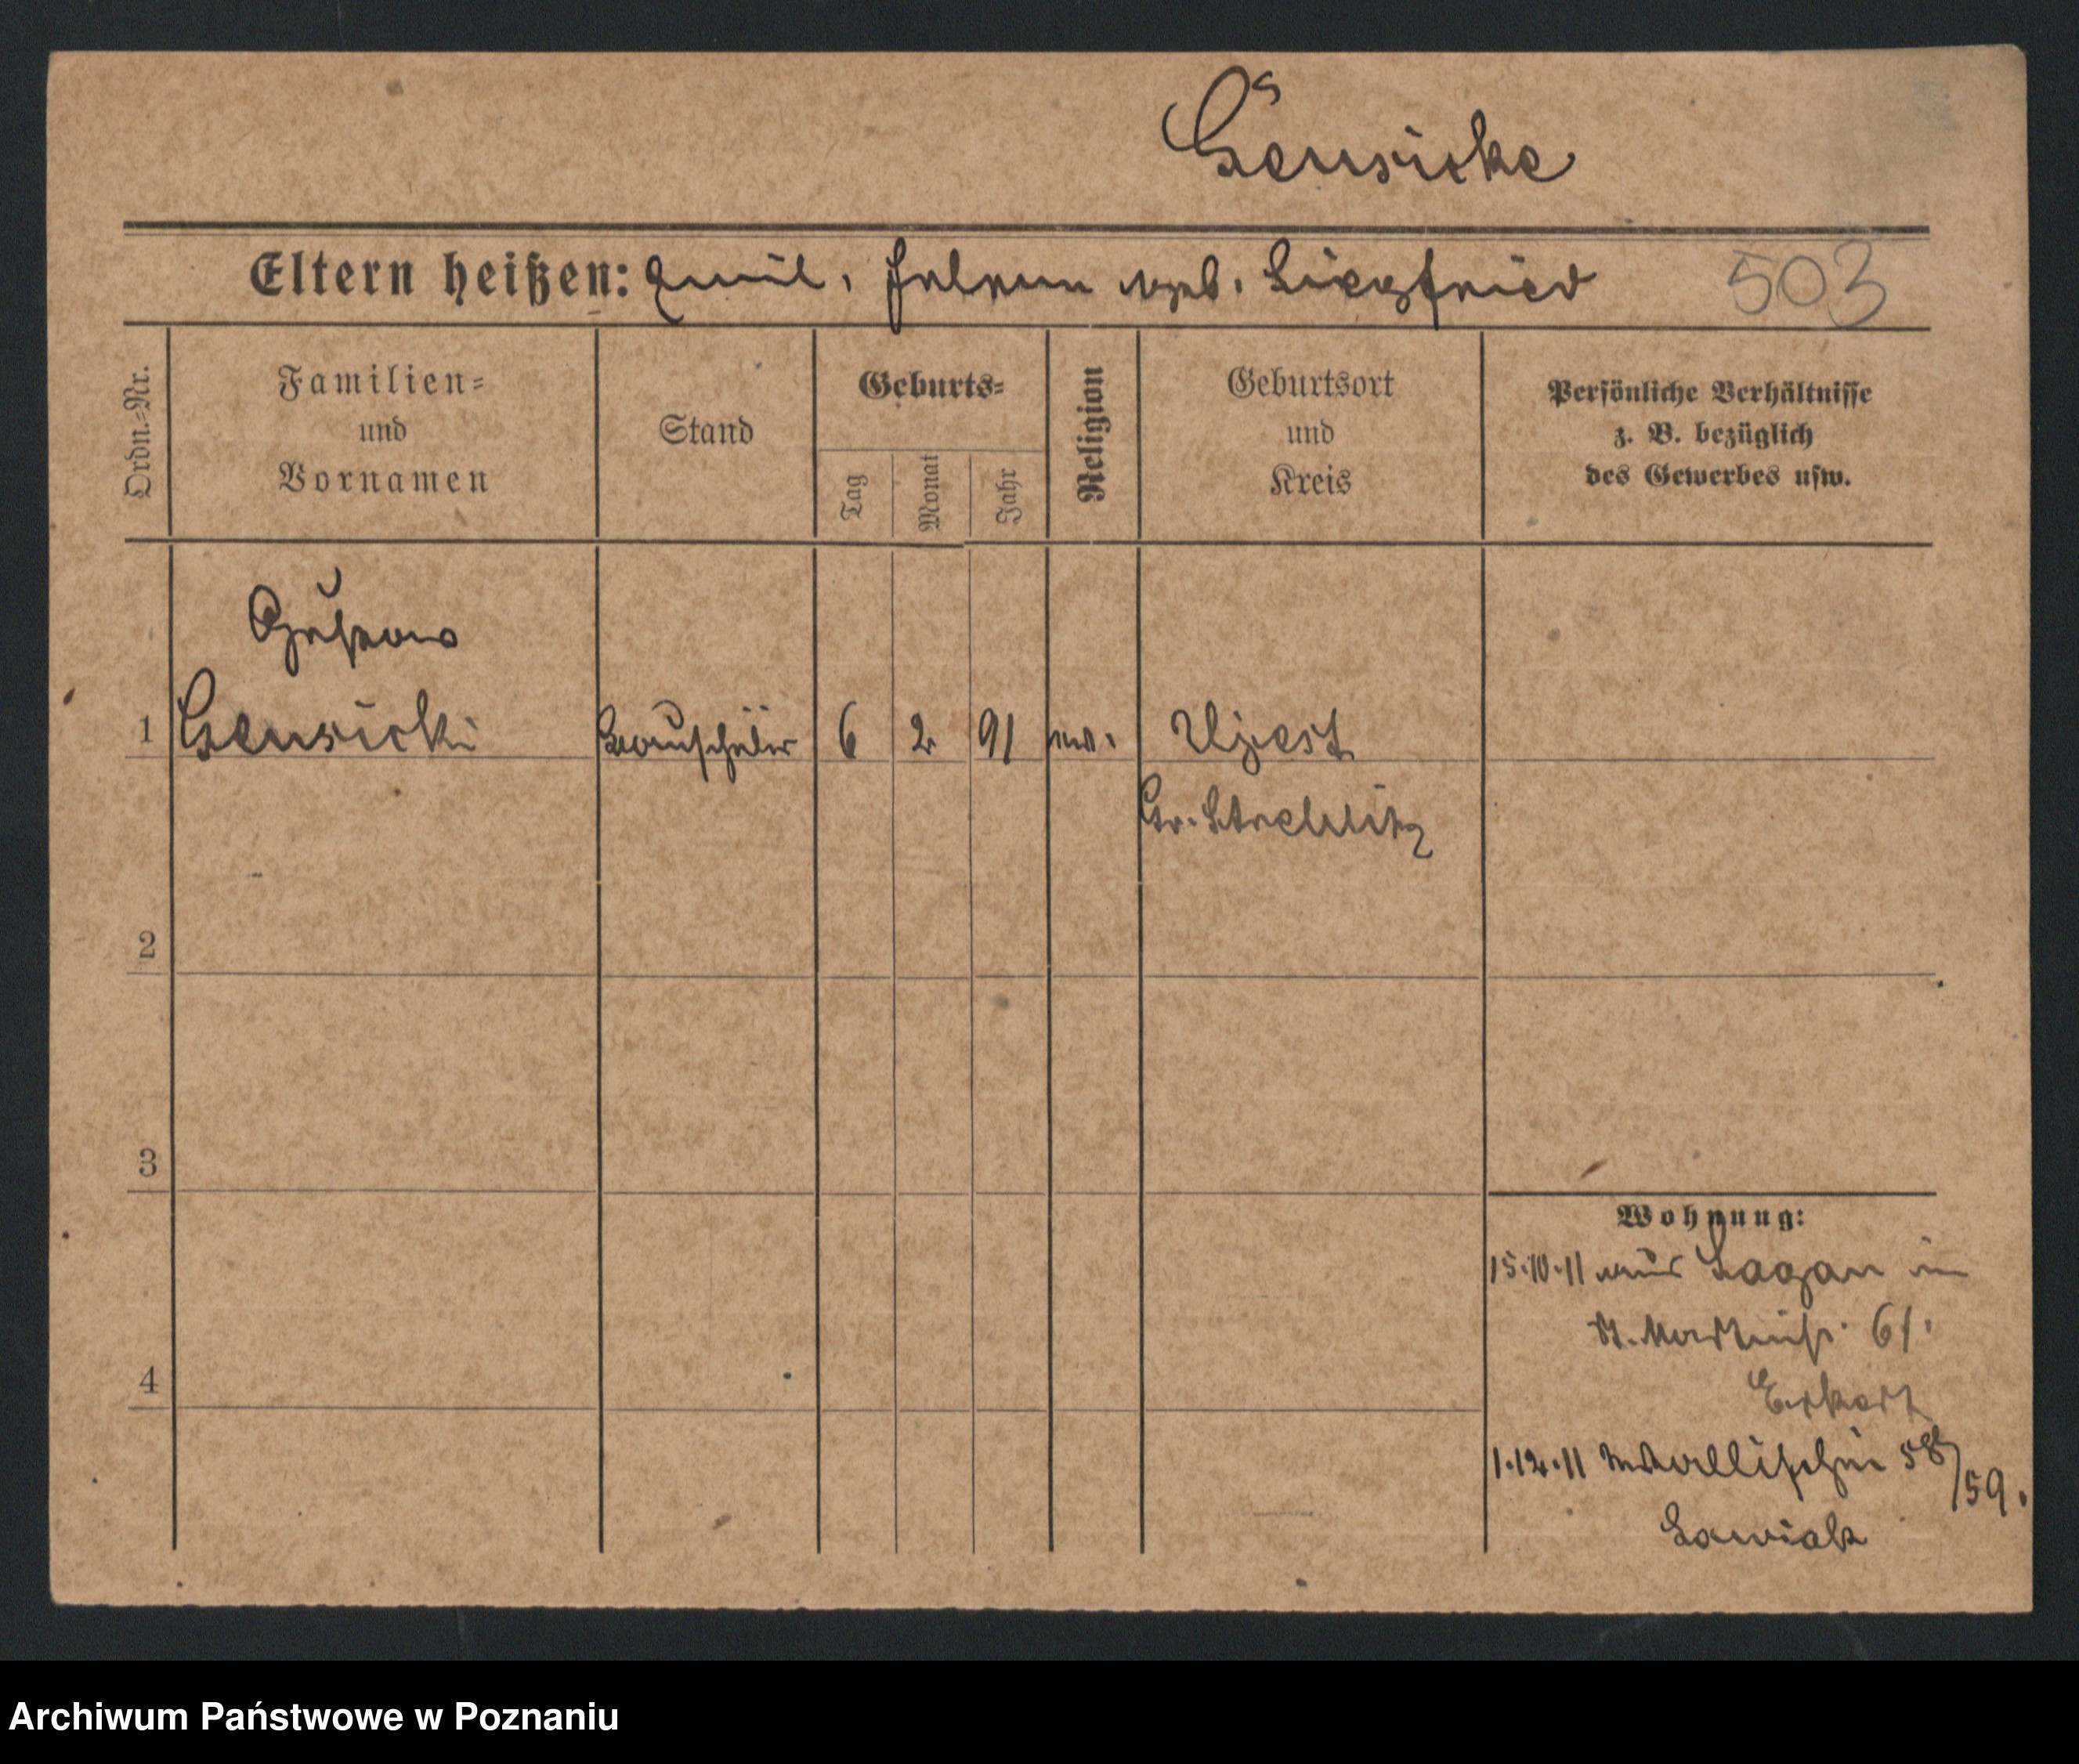 Gensicke
Eltern heißen: Emil, Helene geb. Siegfried 503
Ordn.=Nr.
Familien=
und
Vornamen
Stand
Geburts=
Tag
Monat
Jahr
Religion
Geburtsort
und
Kreis
Persönliche Verhältnisse
z. B. bezüglich
des Gewerbes usw.
Gustav
1 Gensicke Bauschüler 6 2 91 ev. Ujest
Gr. Strehlitz
2
3
4
Wohnung:
15.10.11 aus Sagan in
St. Martinstr. 61.
1.12.11 Wallischei 58/59.
Archiwum Państwowe w Poznaniu